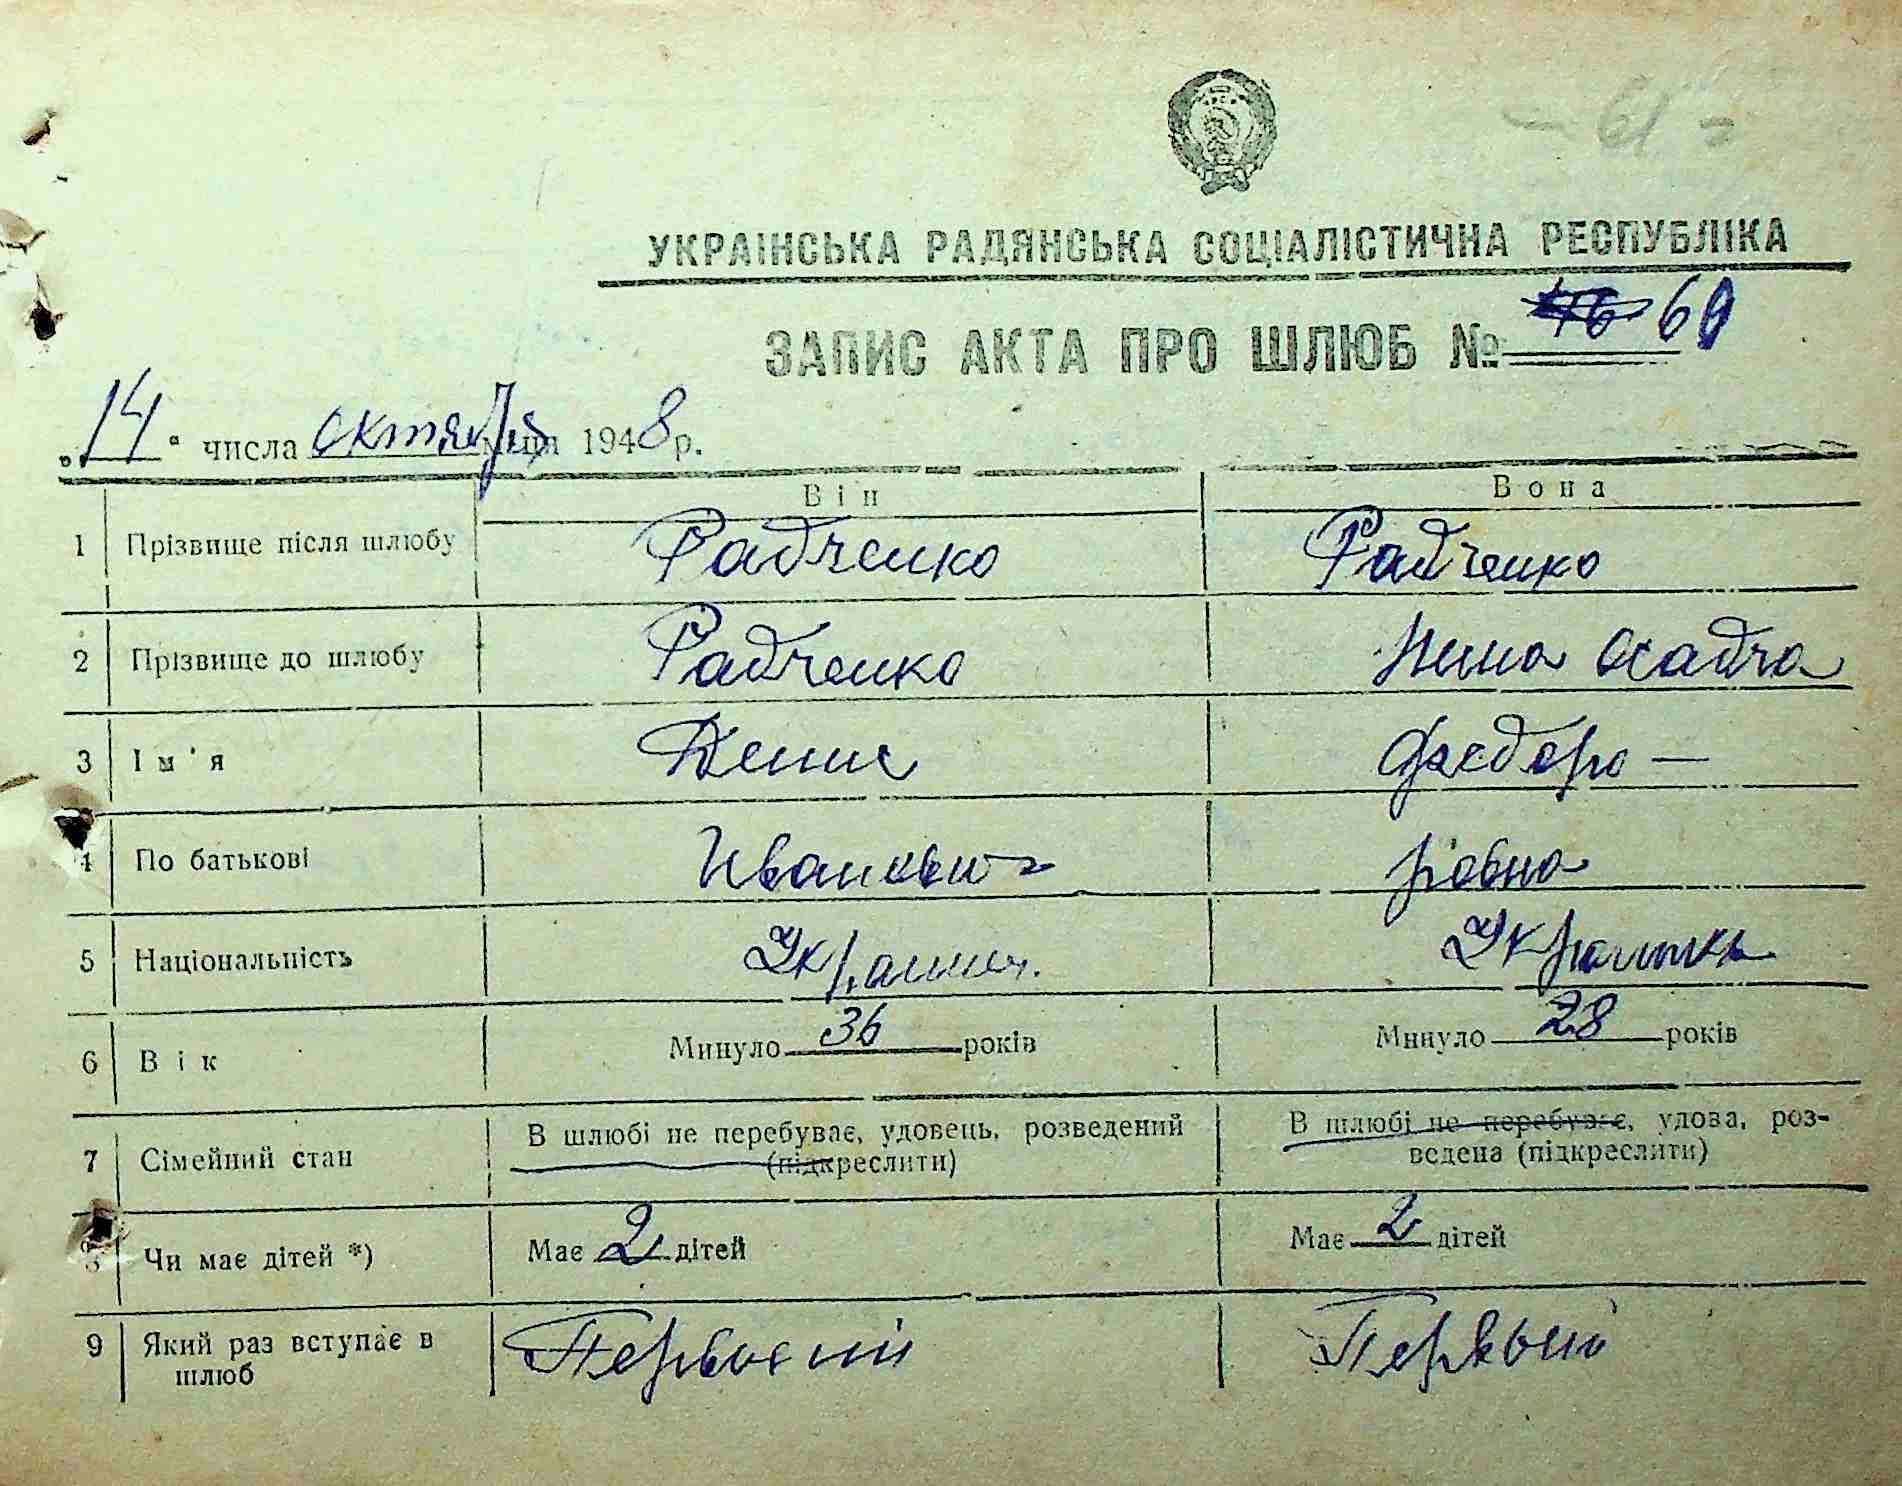 - 61 -
УКРАЇНСЬКА РАДЯНСЬКА СОЦІАЛІСТИЧНА РЕСПУБЛІКА
ЗАПИС АКТА ПРО ШЛЮБ № 60
„14“ числа октября місяця 1948 р.
Він Вона
1 Прізвище після шлюбу Радченко Радченко
2 Прізвище до шлюбу Радченко Нина Осадча
3 Ім'я Денис Федоро —
4 По батькові Иванович ровна
5 Національність Украинец. Украинка
6 Вік Минуло 36 років Минуло 28 років
7 Сімейний стан В шлюбі не перебуває, удовець, розведений В шлюбі не перебуває, удова, роз-
(підкреслити) ведена (підкреслити)
8 Чи має дітей *) Має 2 дітей Має 2 дітей
9 Який раз вступає в Первый Первый
шлюб